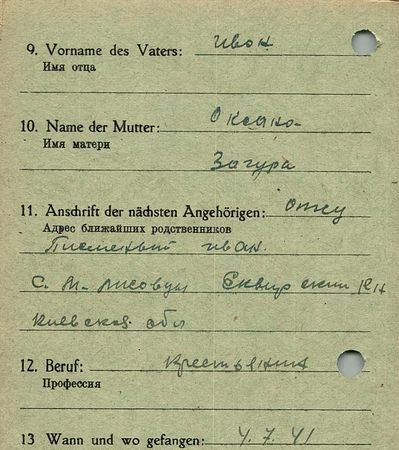 9. Vorname des Vaters: Ивон
Имя отца
10. Name der Mutter: Оксана
Имя матери
Загура
11. Anschrift der nächsten Angehörigen: отец
Адрес ближайших родственников
иван.
С. М. Лисовцы Сквирский
Киевская обл
12. Beruf: крестьянин
Профессия
13 Wann und wo gefangen: 4.7.41